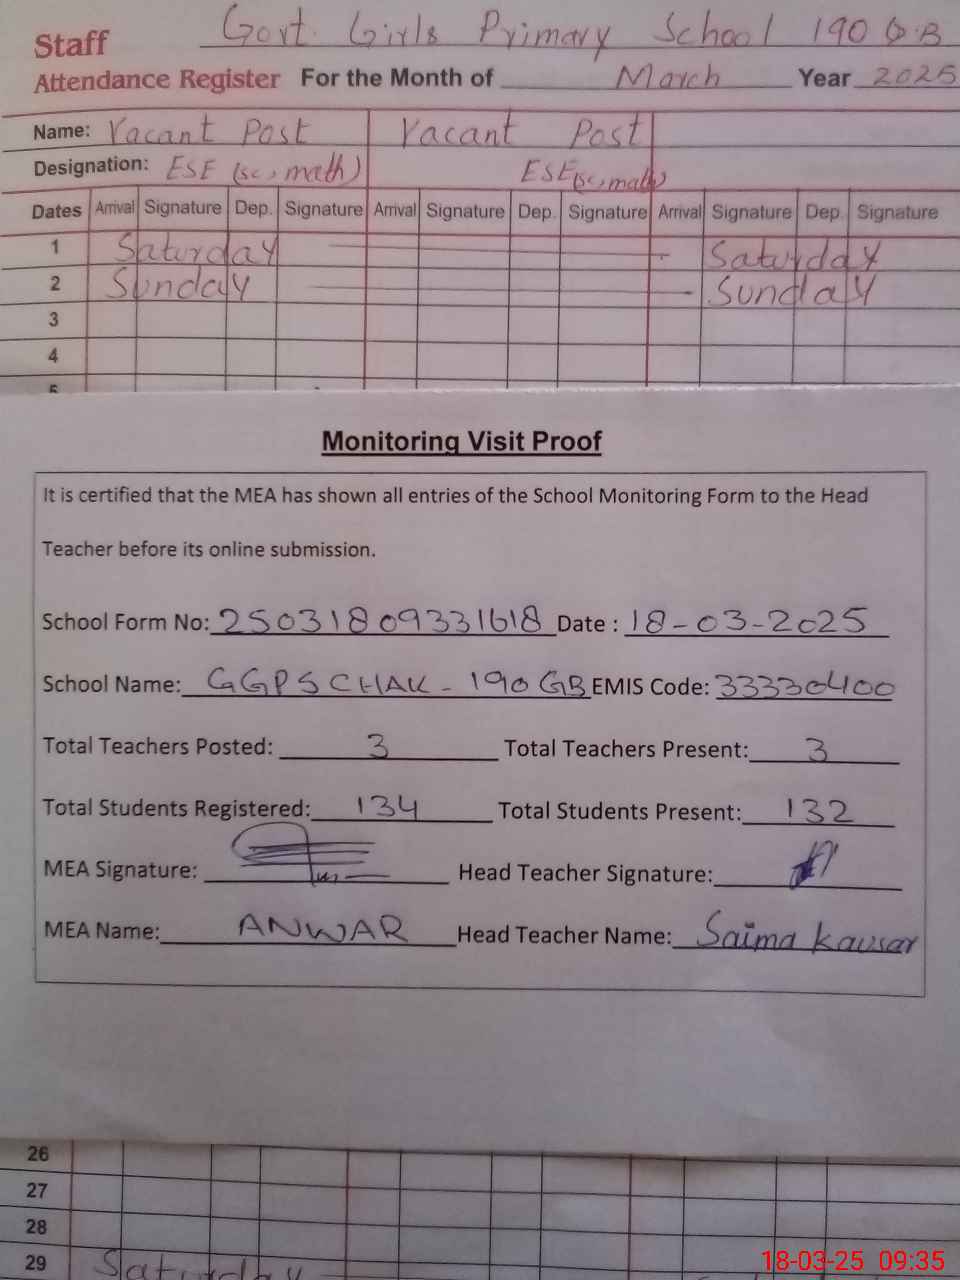 Govt. Girls Primary School 190 G.B
Staff
Attendance Register For the Month of March Year 2025
Name: Vacant Post Vacant Post
Designation: ESE (sc, math) ESE (sc, math)
Dates Arrival Signature Dep. Signature Arrival Signature Dep. Signature Arrival Signature Dep. Signature
1 Saturday Saturday
2 Sunday Sunday
3
4
5
Monitoring Visit Proof
It is certified that the MEA has shown all entries of the School Monitoring Form to the Head
Teacher before its online submission.
School Form No: 25031809331618 Date : 18-03-2025
School Name: GGPS CHAK - 190 GB EMIS Code: 33330400
Total Teachers Posted: 3 Total Teachers Present: 3
Total Students Registered: 134 Total Students Present: 132
MEA Signature: Head Teacher Signature:
MEA Name: ANWAR Head Teacher Name: Saima Kausar
26
27
28
29 Saturday
18-03-25 09:35